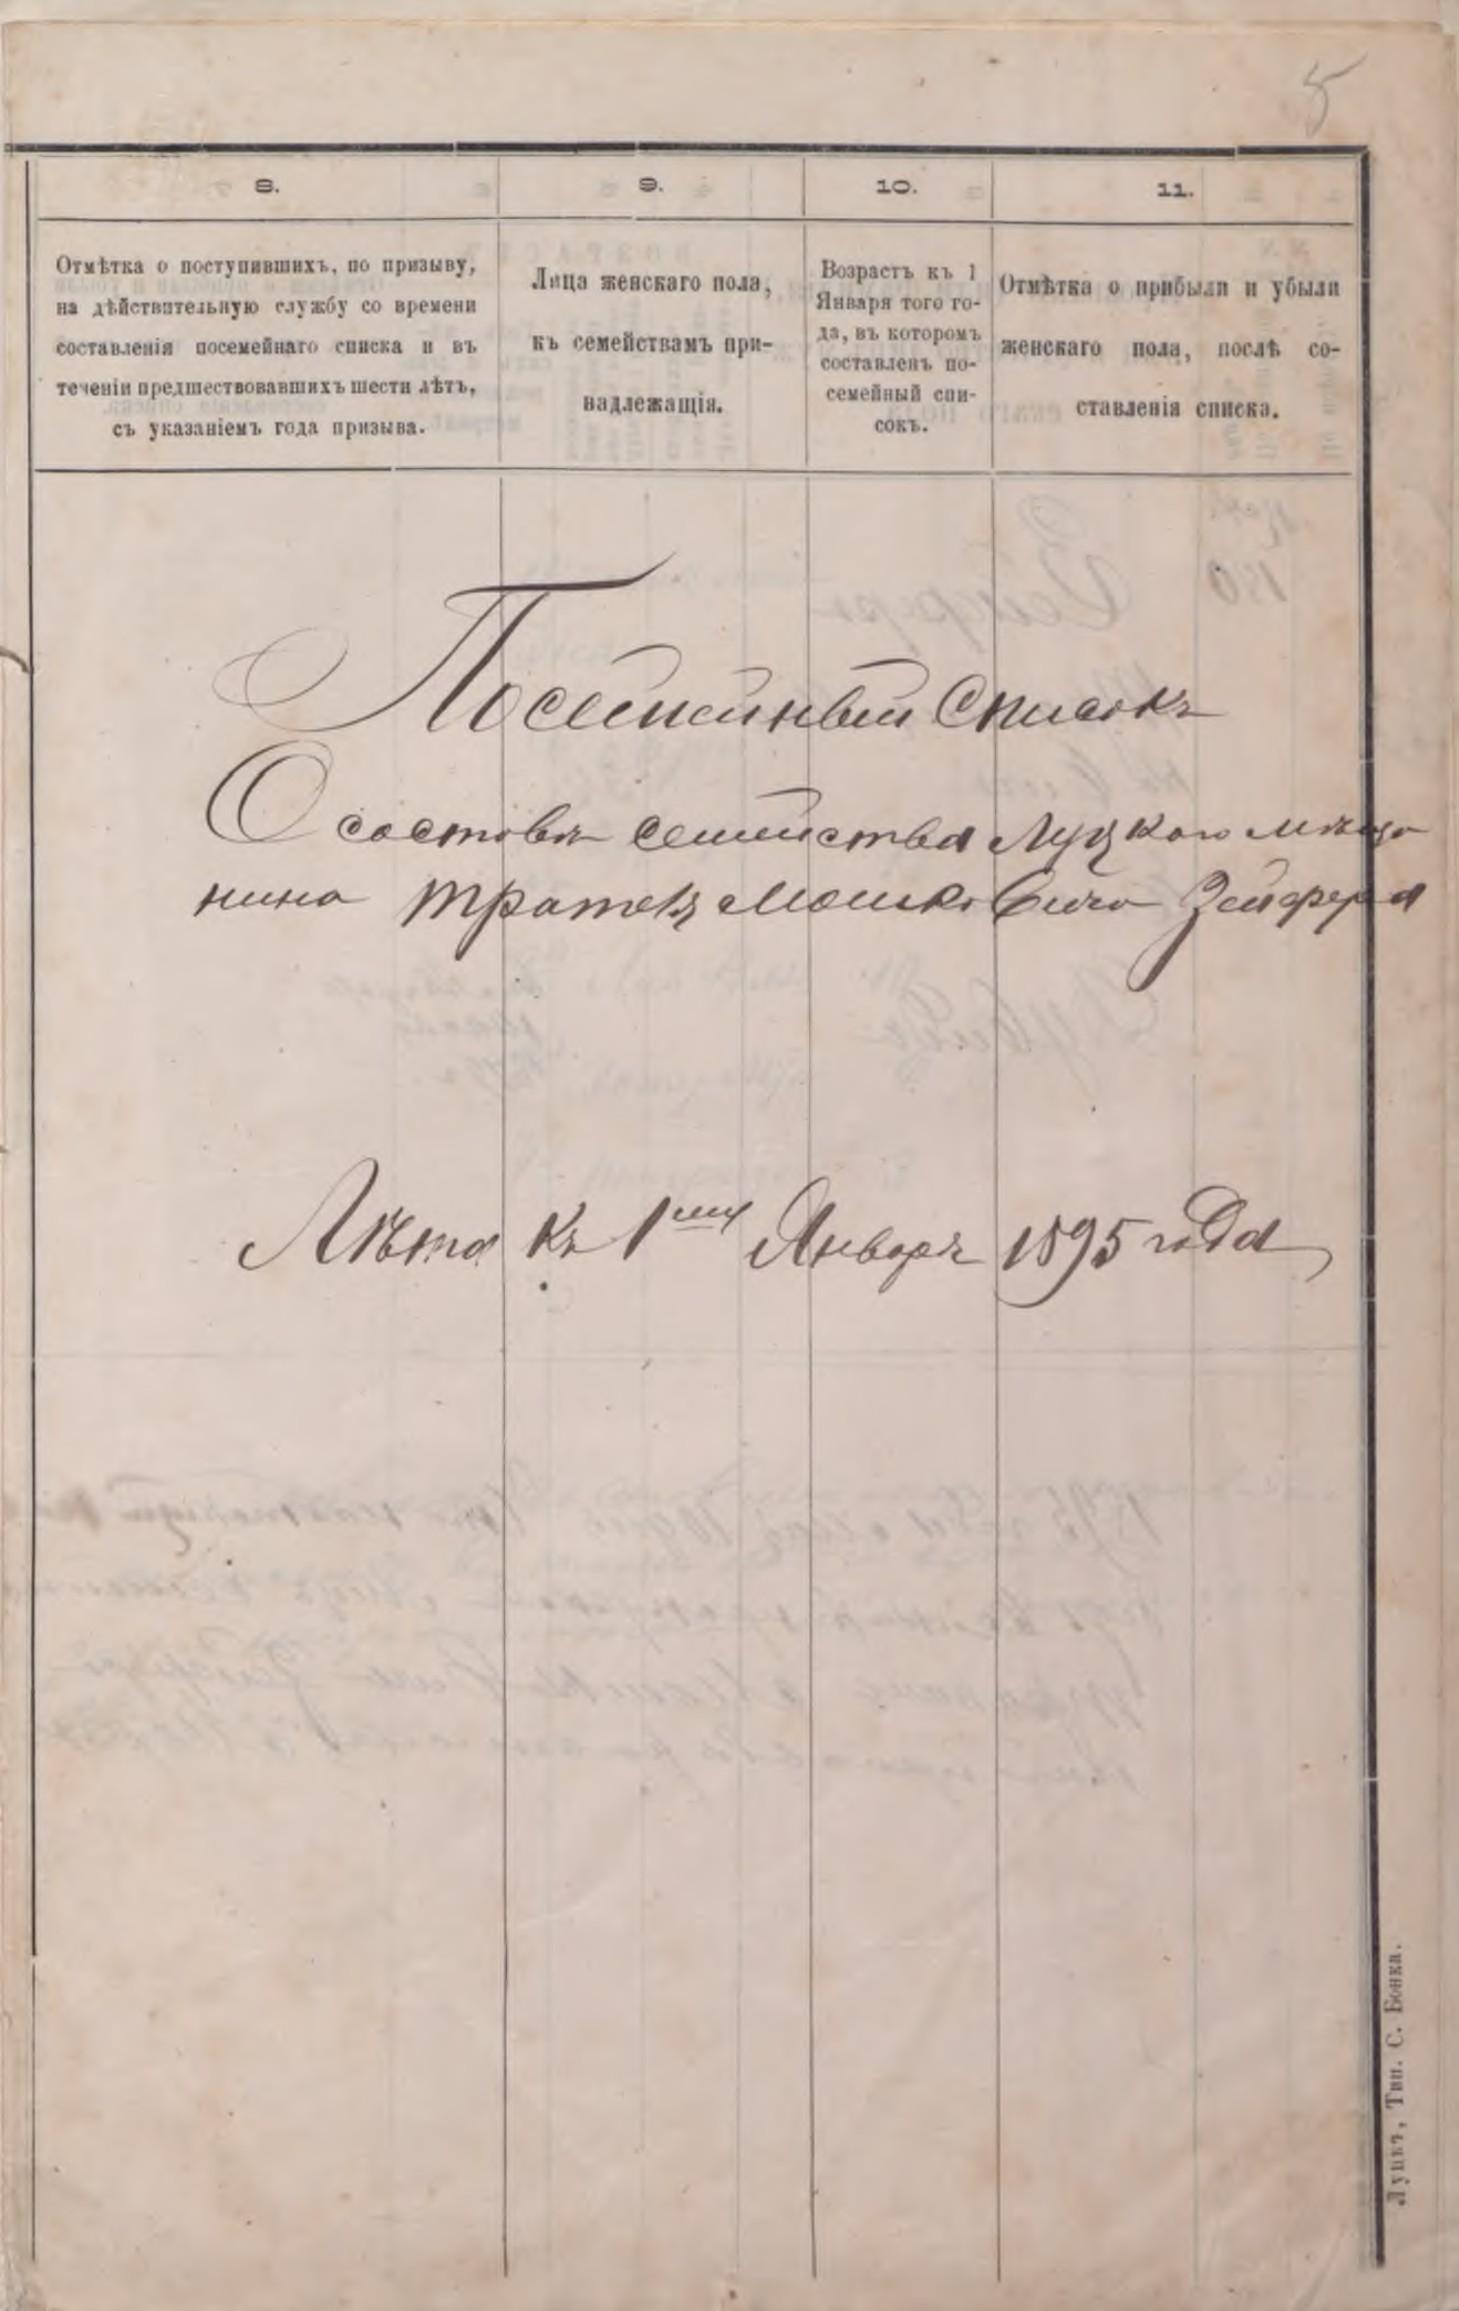 5
8.
9.
10.
11.
Отмѣтка о поступившихъ, по призыву,
на дѣйствительную службу со времени
составленія посемейнаго списка и въ
теченіи предшествовавшихъ шести лѣтъ,
съ указаніемъ года призыва.
Лица женскаго пола,
къ семействамъ при-
надлежащія.
Возрастъ къ 1
Января того го-
да, въ которомъ
составленъ по-
семейный спи-
сокъ.
Отмѣтка о прибыли и убыли
женскаго пола, послѣ со-
ставленія списка.
Посемейный списокъ
О составѣ семейства Луцкаго мѣща
нина Мошковича Зейфера
Лѣта къ 1му Январѣ 1895 года
Луцкъ, Тип. С. Бонка.